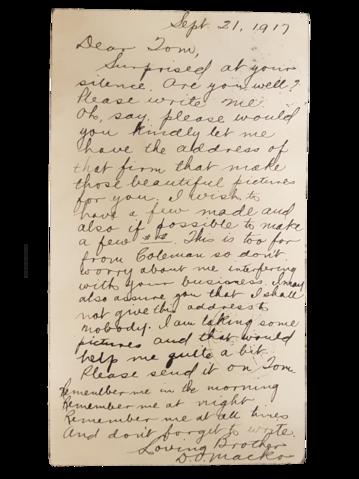 Sept 21, 1917
Dear Tom,
Surprised at your
silence. Are you well?
Please write me.
Oh, say, please would
you kindly let me
have the address of
that firm that make
those beautiful pictures
for you. I wish to
have a few made and
also if possible to make
a few $ $. This is too far
from Coleman so don't
worry about me interfering
with your business. I may
also assure you that I shall
not give this address to
nobody. I am taking some
pictures and that would
help me quite a bit.
Please send it on Tom
Remember me in the morning
Remember me at night
Remember me at all hires
And don't forget to write.
Loving Brother